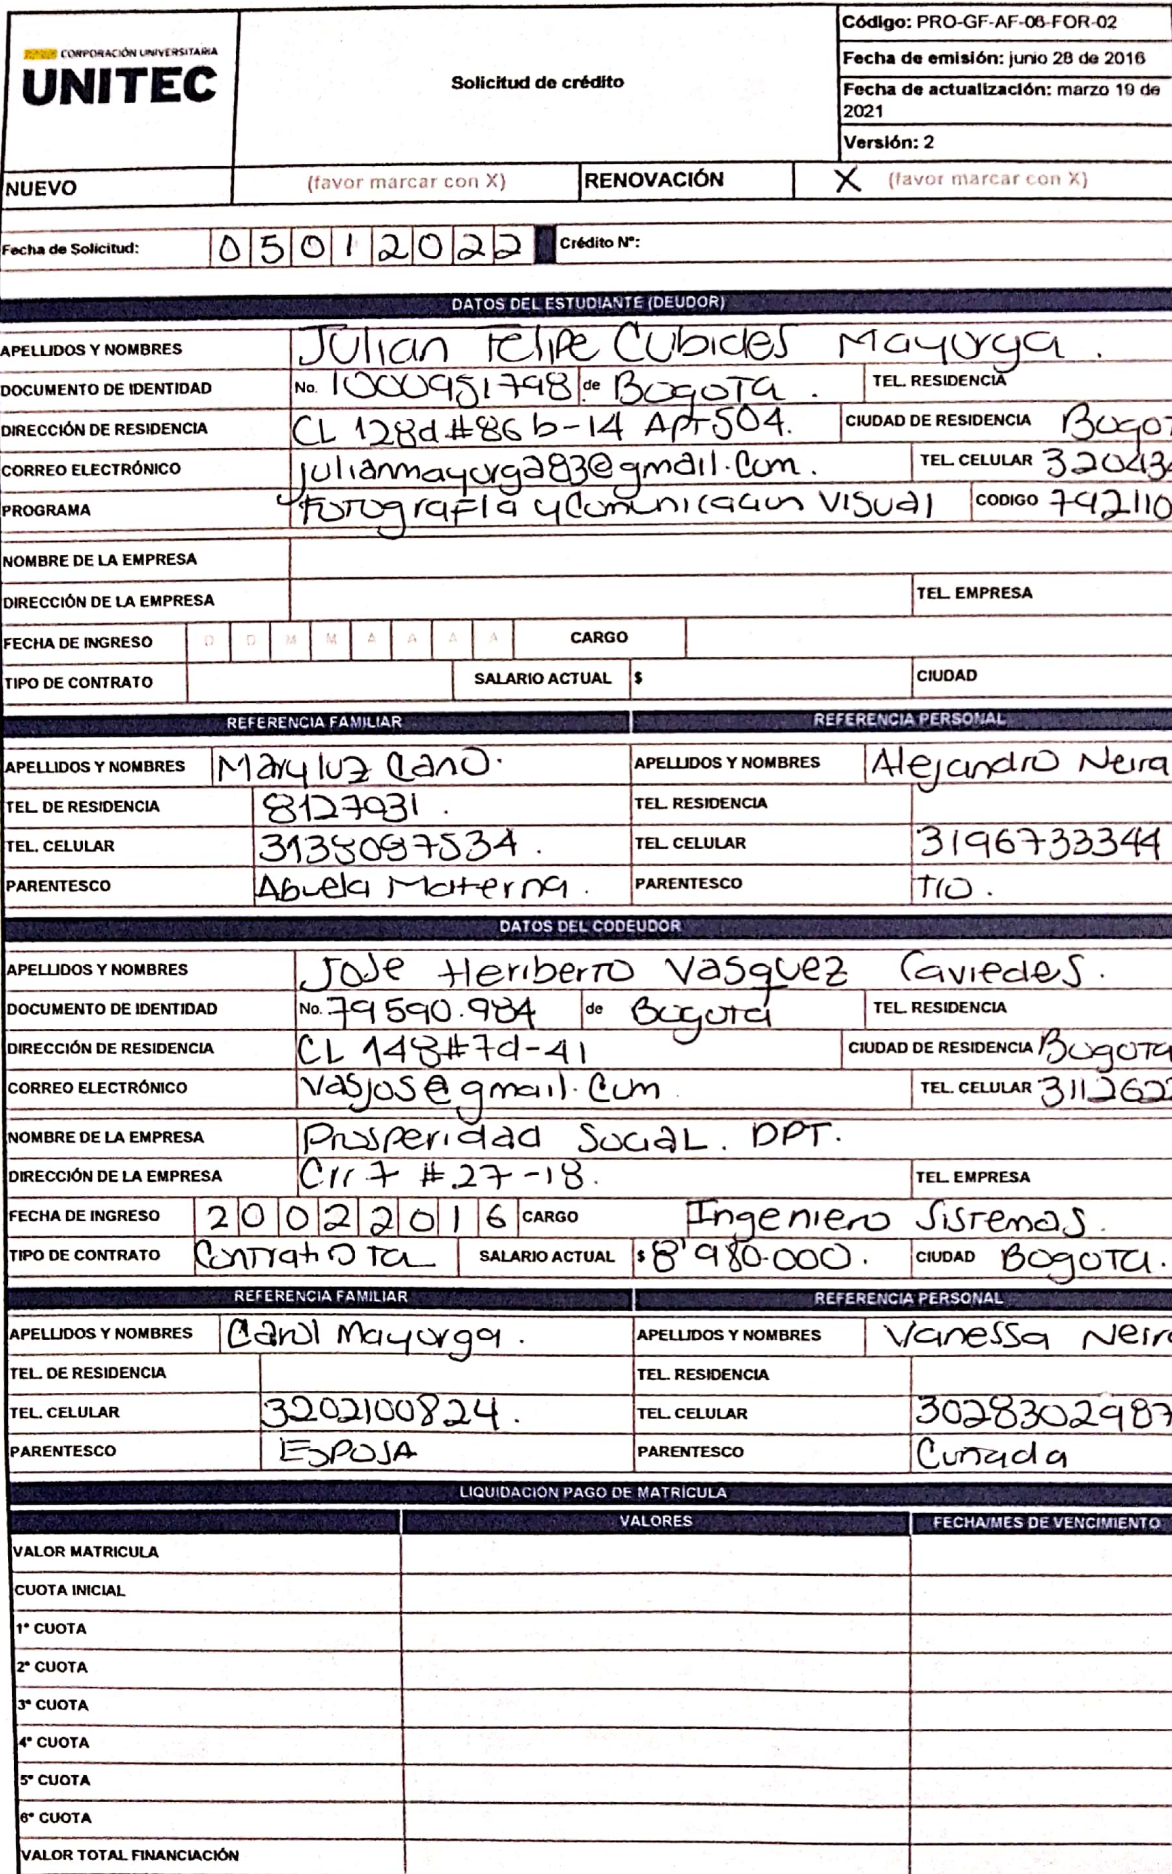 CORPORACIÓN UNIVERSITARIA
UNITEC
Solicitud de crédito
Código: PRO-GF-AF-06-FOR-02
Fecha de emisión: junio 28 de 2016
Fecha de actualización: marzo 19 de 2021
Versión: 2
NUEVO (favor marcar con X) RENOVACIÓN X (favor marcar con X)
Fecha de Solicitud: 05012022 Crédito N°:
DATOS DEL ESTUDIANTE (DEUDOR)
APELLIDOS Y NOMBRES Julian Felipe Cubides Mayorga.
DOCUMENTO DE IDENTIDAD No. 1000951798 de Bogota. TEL. RESIDENCIA
DIRECCIÓN DE RESIDENCIA CL 128d #86b-14 Apt 504. CIUDAD DE RESIDENCIA Bogot
CORREO ELECTRÓNICO julianmayorga83@gmail.com. TEL. CELULAR 320434
PROGRAMA Fotografía y Comunicacion Visual CODIGO 792110
NOMBRE DE LA EMPRESA
DIRECCIÓN DE LA EMPRESA TEL. EMPRESA
FECHA DE INGRESO D D M M A A A A CARGO
TIPO DE CONTRATO SALARIO ACTUAL $ CIUDAD
REFERENCIA FAMILIAR REFERENCIA PERSONAL
APELLIDOS Y NOMBRES Mary luz Cano. APELLIDOS Y NOMBRES Alejandro Neira
TEL. DE RESIDENCIA 8127931. TEL. RESIDENCIA
TEL. CELULAR 3138097534. TEL. CELULAR 3196733344
PARENTESCO Abuela Materna. PARENTESCO Tio.
DATOS DEL CODEUDOR
APELLIDOS Y NOMBRES Jose Heriberto Vasquez Caviedes.
DOCUMENTO DE IDENTIDAD No. 79590.984 de Bogotá TEL. RESIDENCIA
DIRECCIÓN DE RESIDENCIA CL 148#7d-41 CIUDAD DE RESIDENCIA Bogota
CORREO ELECTRÓNICO vasjos@gmail.com TEL. CELULAR 3112622
NOMBRE DE LA EMPRESA Prosperidad Social. DPT.
DIRECCIÓN DE LA EMPRESA Crr 7 #27-18. TEL. EMPRESA
FECHA DE INGRESO 20022016 CARGO Ingeniero Sistemas.
TIPO DE CONTRATO Contratista SALARIO ACTUAL $ 8'980.000. CIUDAD Bogota.
REFERENCIA FAMILIAR REFERENCIA PERSONAL
APELLIDOS Y NOMBRES Carol Mayorga. APELLIDOS Y NOMBRES Vanessa Neira
TEL. DE RESIDENCIA TEL. RESIDENCIA
TEL. CELULAR 3202100824. TEL. CELULAR 3028302987
PARENTESCO ESPOSA PARENTESCO Cuñada
LIQUIDACIÓN PAGO DE MATRÍCULA
VALORES FECHA/MES DE VENCIMIENTO
VALOR MATRICULA
CUOTA INICIAL
1° CUOTA
2° CUOTA
3° CUOTA
4° CUOTA
5° CUOTA
6° CUOTA
VALOR TOTAL FINANCIACIÓN